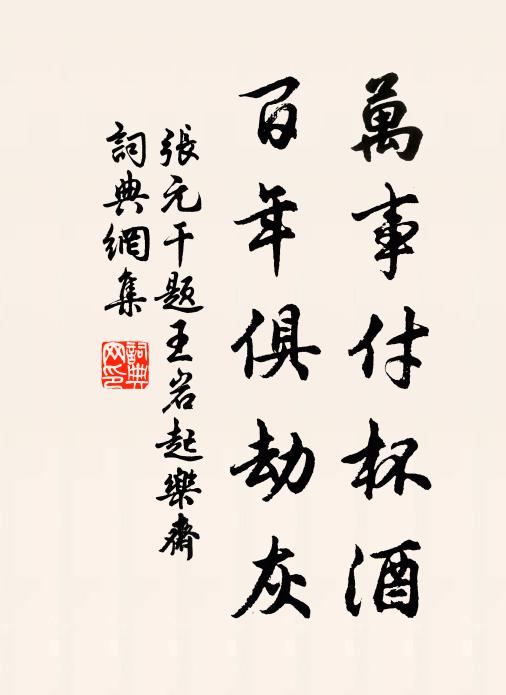 萬事付杯酒
百年俱劫灰
張元干题王岩起樂齋
詞典網集
詞典网印